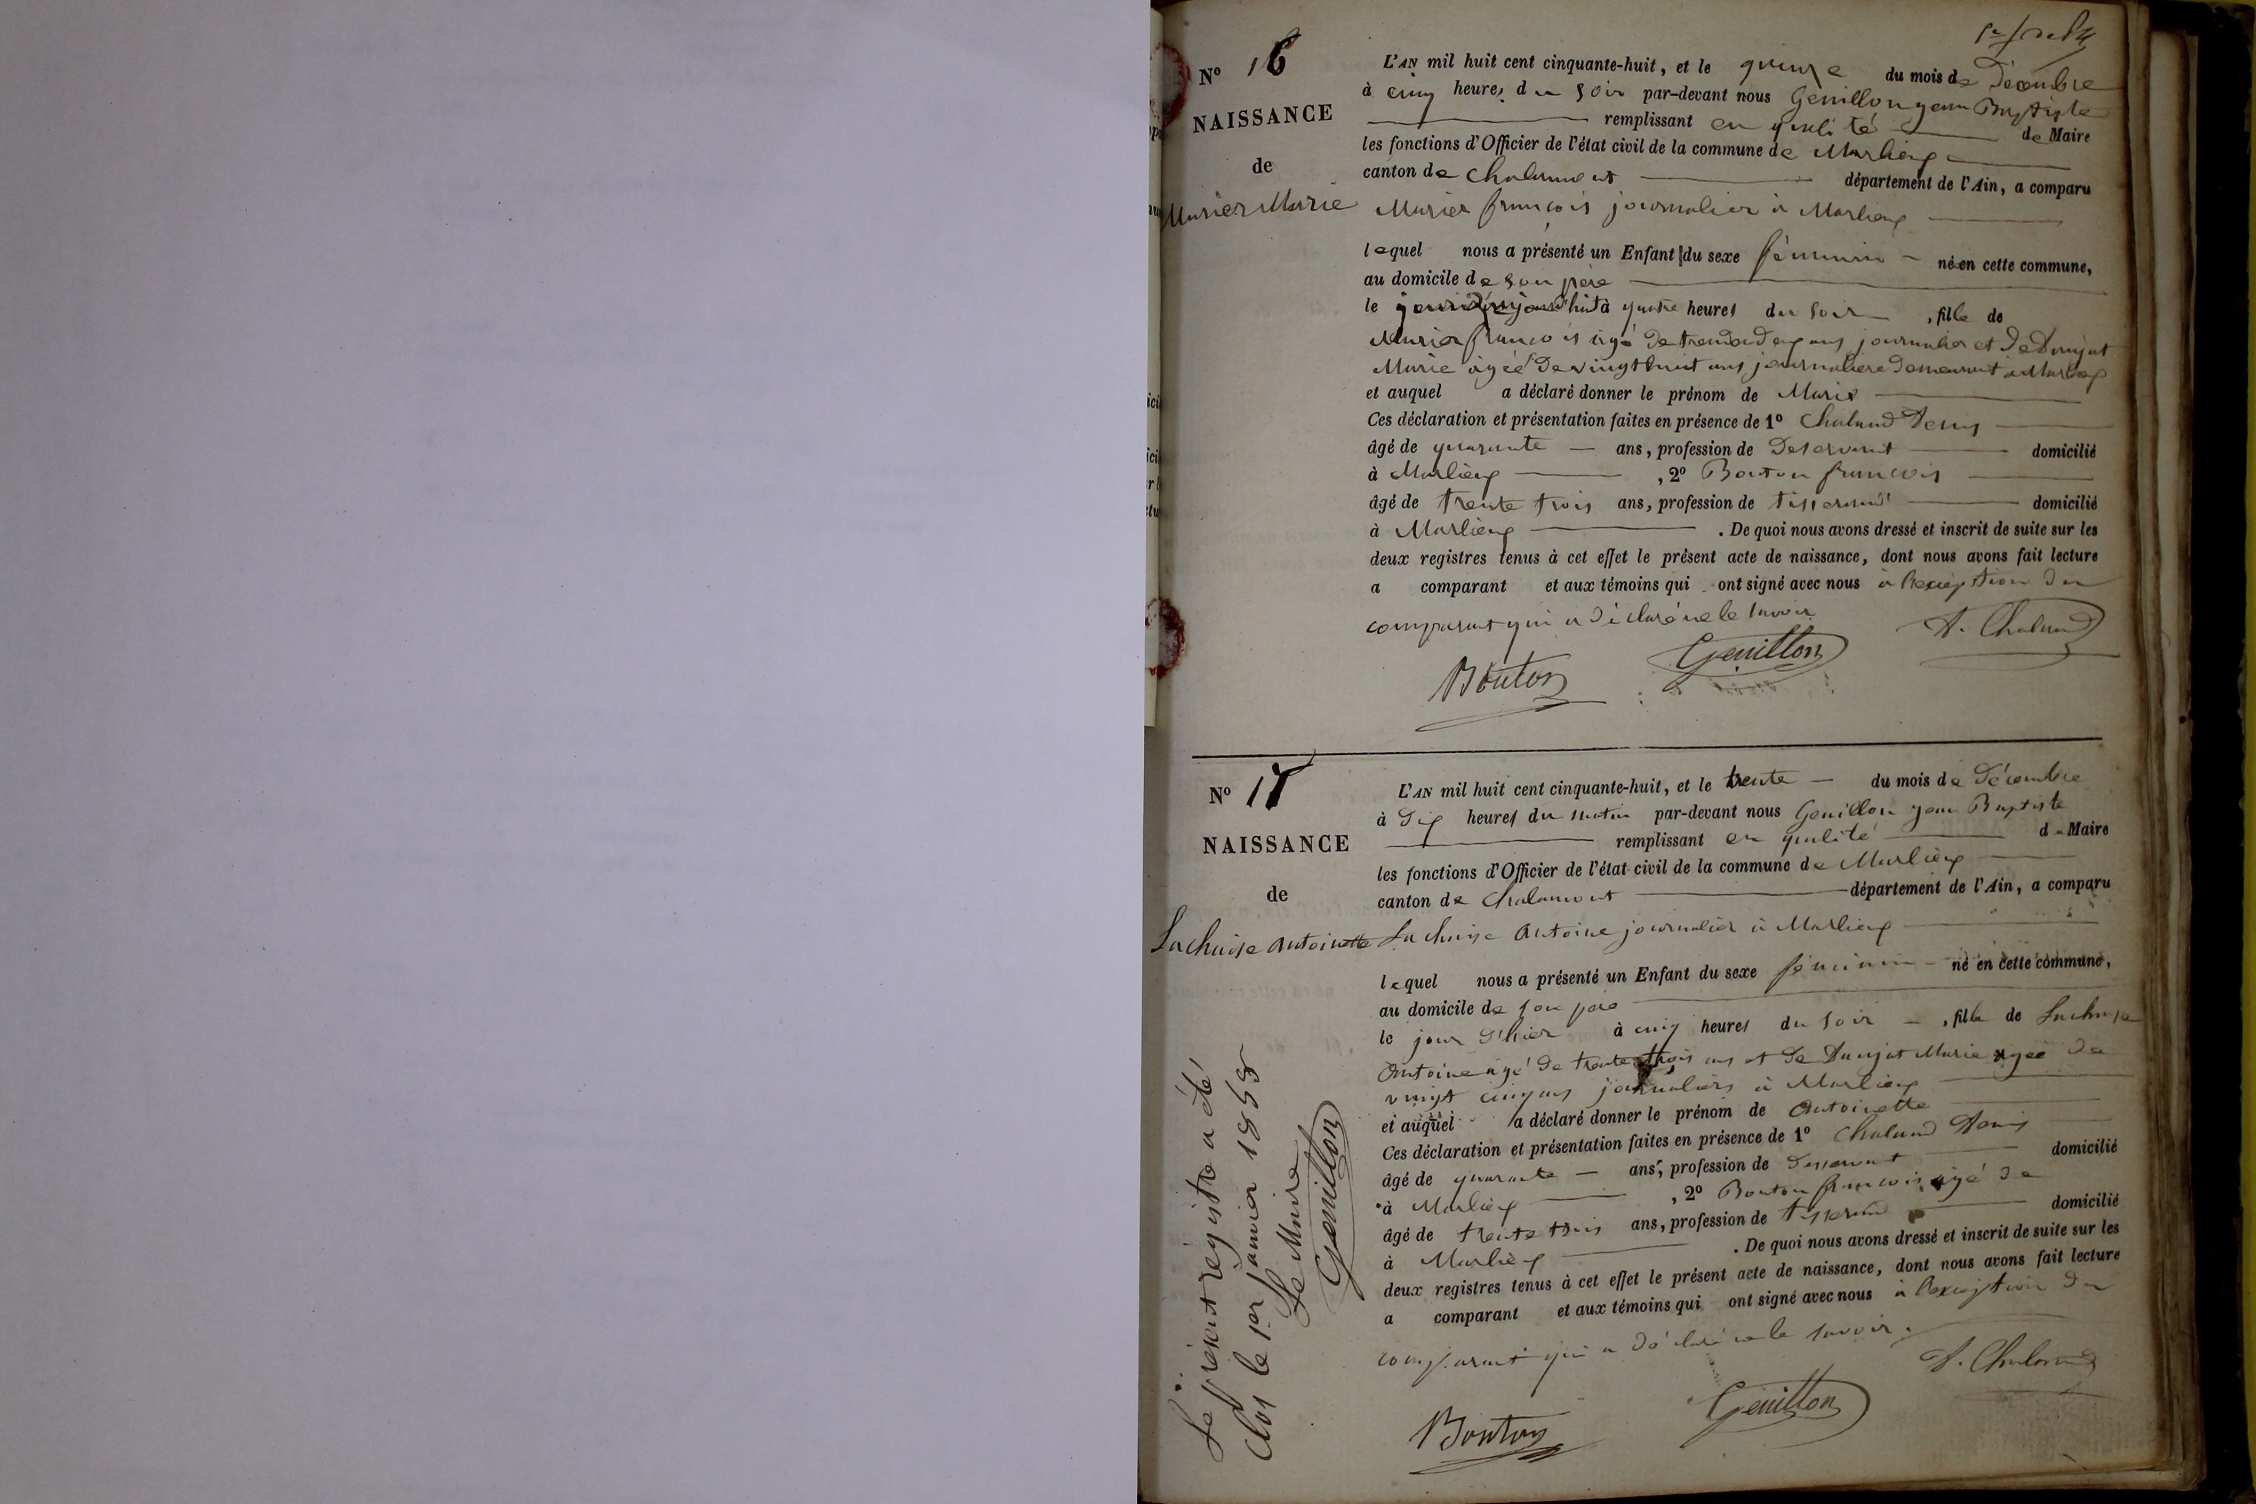 Nº 16
NAISSANCE
de
Murier Marie
L'AN mil huit cent cinquante-huit, et le quinze du mois de Décembre
à cinq heures du soir par-devant nous Genillon jean Baptiste
remplissant en qualité de Maire
les fonctions d'Officier de l'état civil de la commune de Marlieux
canton de Chalamont département de l'Ain, a comparu
Murier françois journalier à Marlieux
lequel nous a présenté un Enfant du sexe féminin né en cette commune,
au domicile de son père
le jour d'aujourd'hui à quatre heures du soir, fille de
Murier francois âgé de trente deux ans journalier et de
Marie âgée de vingt huit ans journaliere demeurant à Marlieux
et auquel a déclaré donner le prénom de Marie
Ces déclaration et présentation faites en présence de 1º Chaland Denis
âgé de quarante ans, profession de Desservant domicilié
à Marlieux, 2º Bouton francois
âgé de trente trois ans, profession de tisserand domicilié
à Marlieux. De quoi nous avons dressé et inscrit de suite sur les
deux registres tenus à cet effet le présent acte de naissance, dont nous avons fait lecture
a comparant et aux témoins qui ont signé avec nous à l'exception du
comparant qui a déclaré ne le savoir
D. Chaland
Genillon
Bouton
Nº 17
NAISSANCE
de
Lachaise Antoinette
L'AN mil huit cent cinquante-huit, et le trente du mois de Décembre
à Dix heures du matin par-devant nous Genillon jean Baptiste
remplissant en qualité de Maire
les fonctions d'Officier de l'état civil de la commune de Marlieux
canton de Chalamont département de l'Ain, a comparu
Lachaise Antoine journalier à Marlieux
lequel nous a présenté un Enfant du sexe féminin né en cette commune,
au domicile de son père
le jour d'hier à cinq heures du soir, fille de Lachaise
Antoine âgé de trente trois ans et de Marie agée de
vingt cinq ans journaliers à Marlieux
et auquel a déclaré donner le prénom de Antoinette
Ces déclaration et présentation faites en présence de 1º Chaland Denis
âgé de quarante ans, profession de desservant domicilié
à Marlieux, 2º Bouton francois âgé de
âgé de trente trois ans, profession de tisserand domicilié
à Marlieux. De quoi nous avons dressé et inscrit de suite sur les
deux registres tenus à cet effet le présent acte de naissance, dont nous avons fait lecture
a comparant et aux témoins qui ont signé avec nous à l'exception du
comparant qui a déclaré ne le savoir.
D. Chaland
Genillon
Bouton
Le présent registre a été
clos le 1er janvier 1858
Le Maire
Genillon